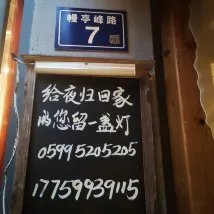 幔亭峰路
7
给夜归回家
的您留一盏灯
05995205205
17759939115